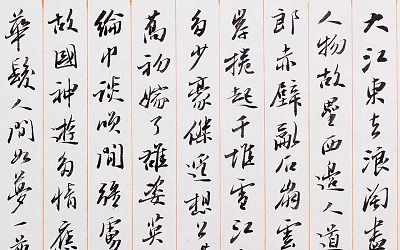 大江東去浪淘盡
人物故壘西邊人道
郎赤壁亂石崩雲
岸捲起千堆雪江
多少豪傑遙想公
喬初嫁了雄姿英
綸巾談笑間強虜
故國神遊多情應
華髮人間如夢一